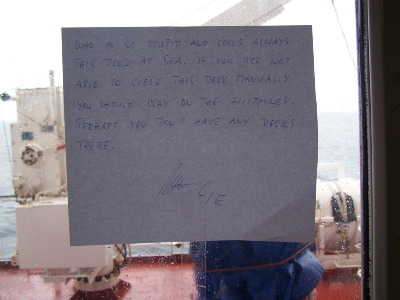 WHO IS SO STUPID AND LOCKS ALWAYS
THIS DOOR AT SEA. IF YOU ARE NOT
ABLE TO CLOSE THIS DOOR MANUALLY
YOU SHOULD STAY ON THE FILIPPINES.
PERHAPS YOU DON'T HAVE ANY DOORS
THERE.
C/E